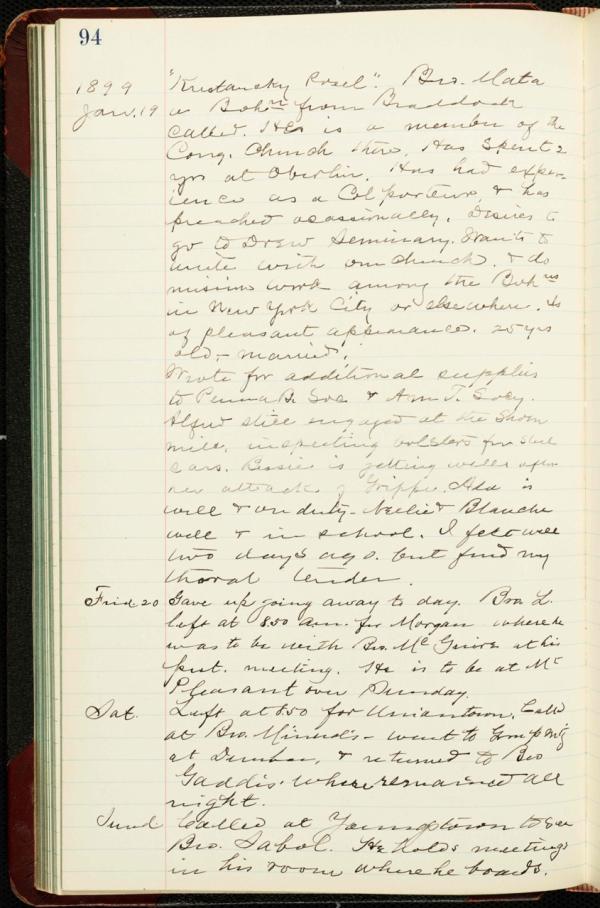 94
1899 "Krestansky Posel". Bro. Mata
Jan. 19 a Bohn from Braddock
called. He is a member of the
Cong. Church there. Has spent 2
yrs at Oberlin. Has had exper-
ience as a Colporteur, & has
preached ocassionally. Desires to
go to Drew Seminary. Wants to
unite with our church, & do
mission work among the Bohns
in New York City or elsewhere. Is
of pleasant appearance. 25 yrs
old, - married.
Wrote for additional supplies
to Penna B. Soc & Am T. Socy.
Alfred still engaged at the Shoen
mill, inspecting bolsters for steel
cars. Bessie is getting well after
her attack of Grippe. Ada is
well & on duty - Nellie & Blanche
well & in school. I felt well
two days ago. but find my
throat tender.
Frid 20 Gave up going away to day. Bro. L.
left at 8.50 a.m. for Morgan where he
was to be with Bro. McGuire at his
meeting. He is to be at Mt
Pleasant over Sunday.
Sat. Left at 8.50 for Uniontown. Call'd
at Bro. Minerd's - went to meet'g
at Dunbar, & returned to Bro
Gaddis' where remained all
night.
Sund Called at Youngstown to see
Bro. Sabol. He holds meetings
in his room where he boards.